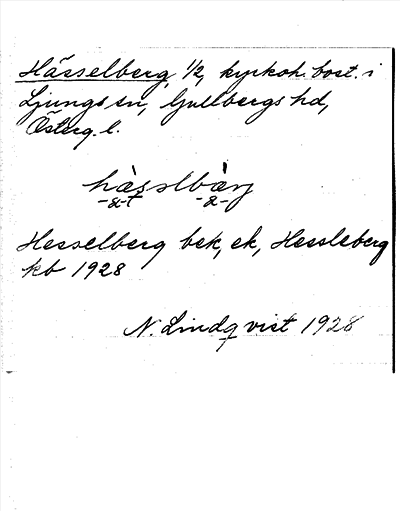 Hässelberg, 1/2, kyrkoh. bost. i
Ljungs sn, Gullbergs hd,
Österg. l.
Hesselberg bek, ek, Hessleberg
kb 1928
N. Lindqvist 1928